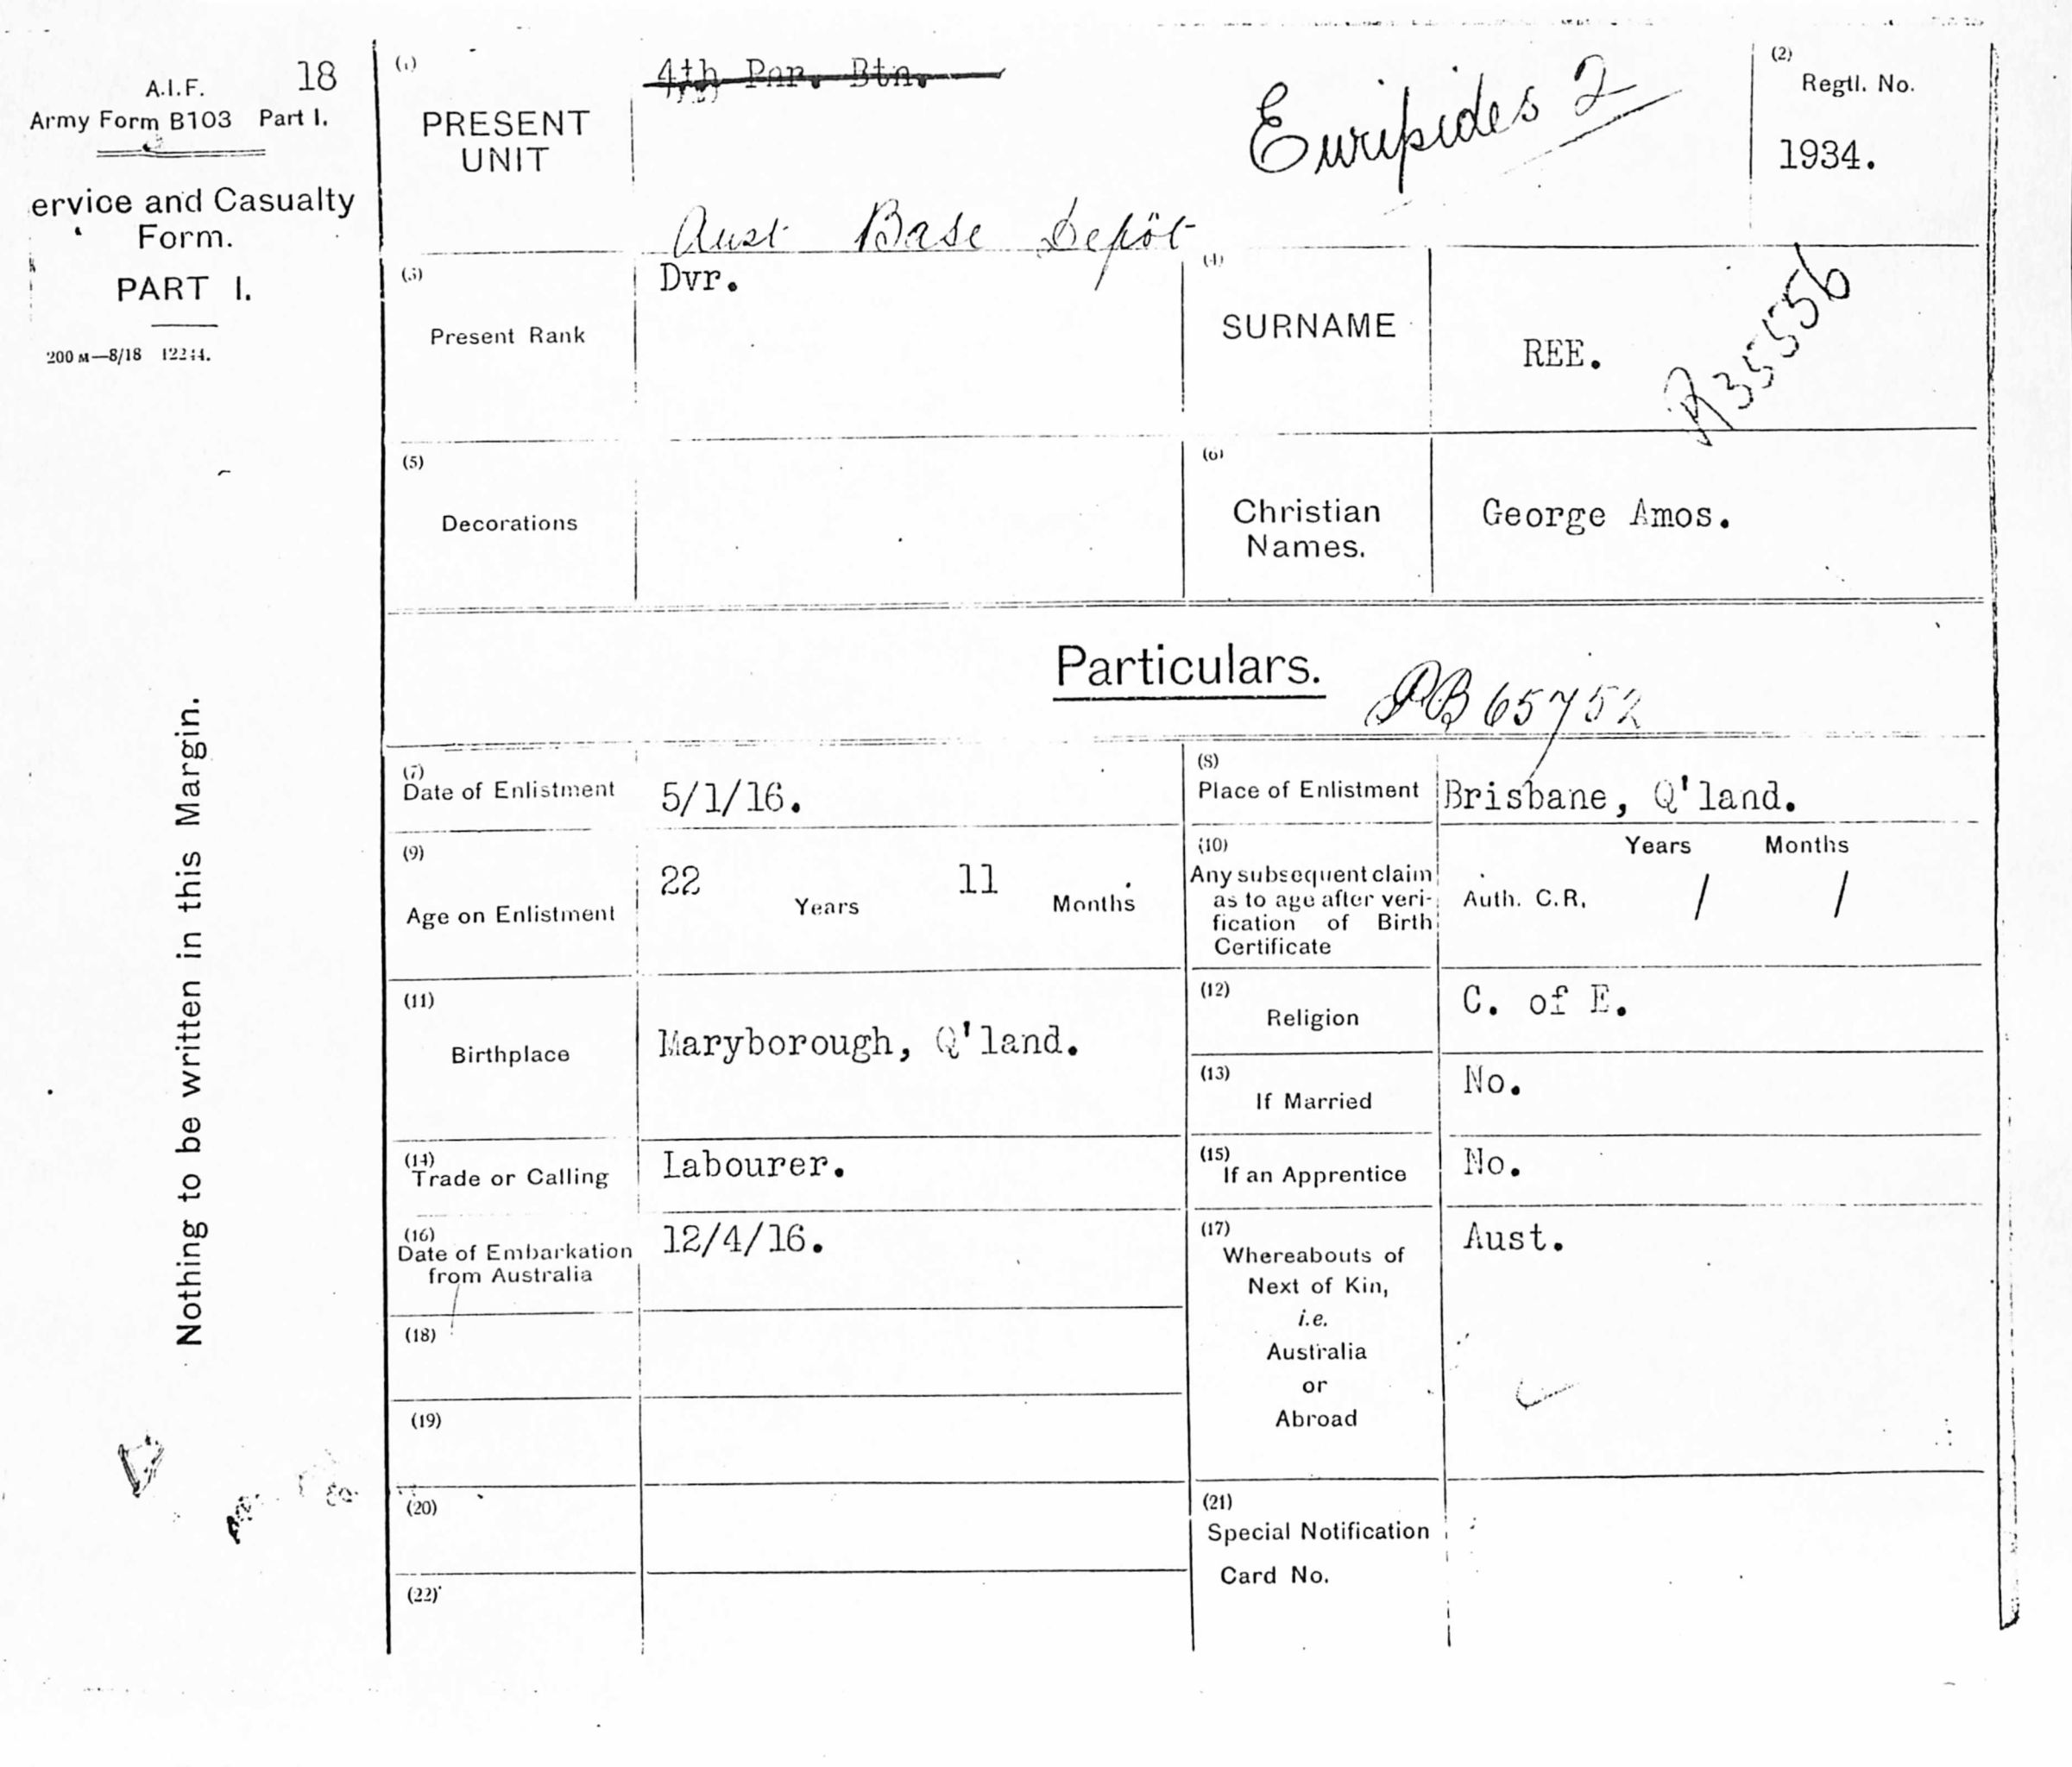 A.I.F. 18
Army Form B103 Part I.
ervice and Casualty
Form.
PART I.
200 M—8/18 12244.
Nothing to be written in this Margin.
(1)
PRESENT
UNIT
4th Btn.
Euripides 2
Aust Base Depôt
(2)
Regtl. No.
1934.
(3)
Present Rank
Dvr.
(4)
SURNAME
REE.
R35556
(5)
Decorations
(6)
Christian
Names.
George Amos.
Particulars.
65752
(7)
Date of Enlistment
5/1/16.
(8)
Place of Enlistment
Brisbane, Q'land.
(9)
Age on Enlistment
22 Years 11 Months
(10)
Any subsequent claim
as to age after veri-
fication of Birth
Certificate
Years Months
Auth. C.R. / /
(11)
Birthplace
Maryborough, Q'land.
(12)
Religion
C. of E.
(13)
If Married
No.
(14)
Trade or Calling
Labourer.
(15)
If an Apprentice
No.
(16)
Date of Embarkation
from Australia
12/4/16.
(17)
Whereabouts of
Next of Kin,
i.e.
Australia
or
Abroad
Aust.
(18)
(19)
(20)
(21)
Special Notification
Card No.
(22)